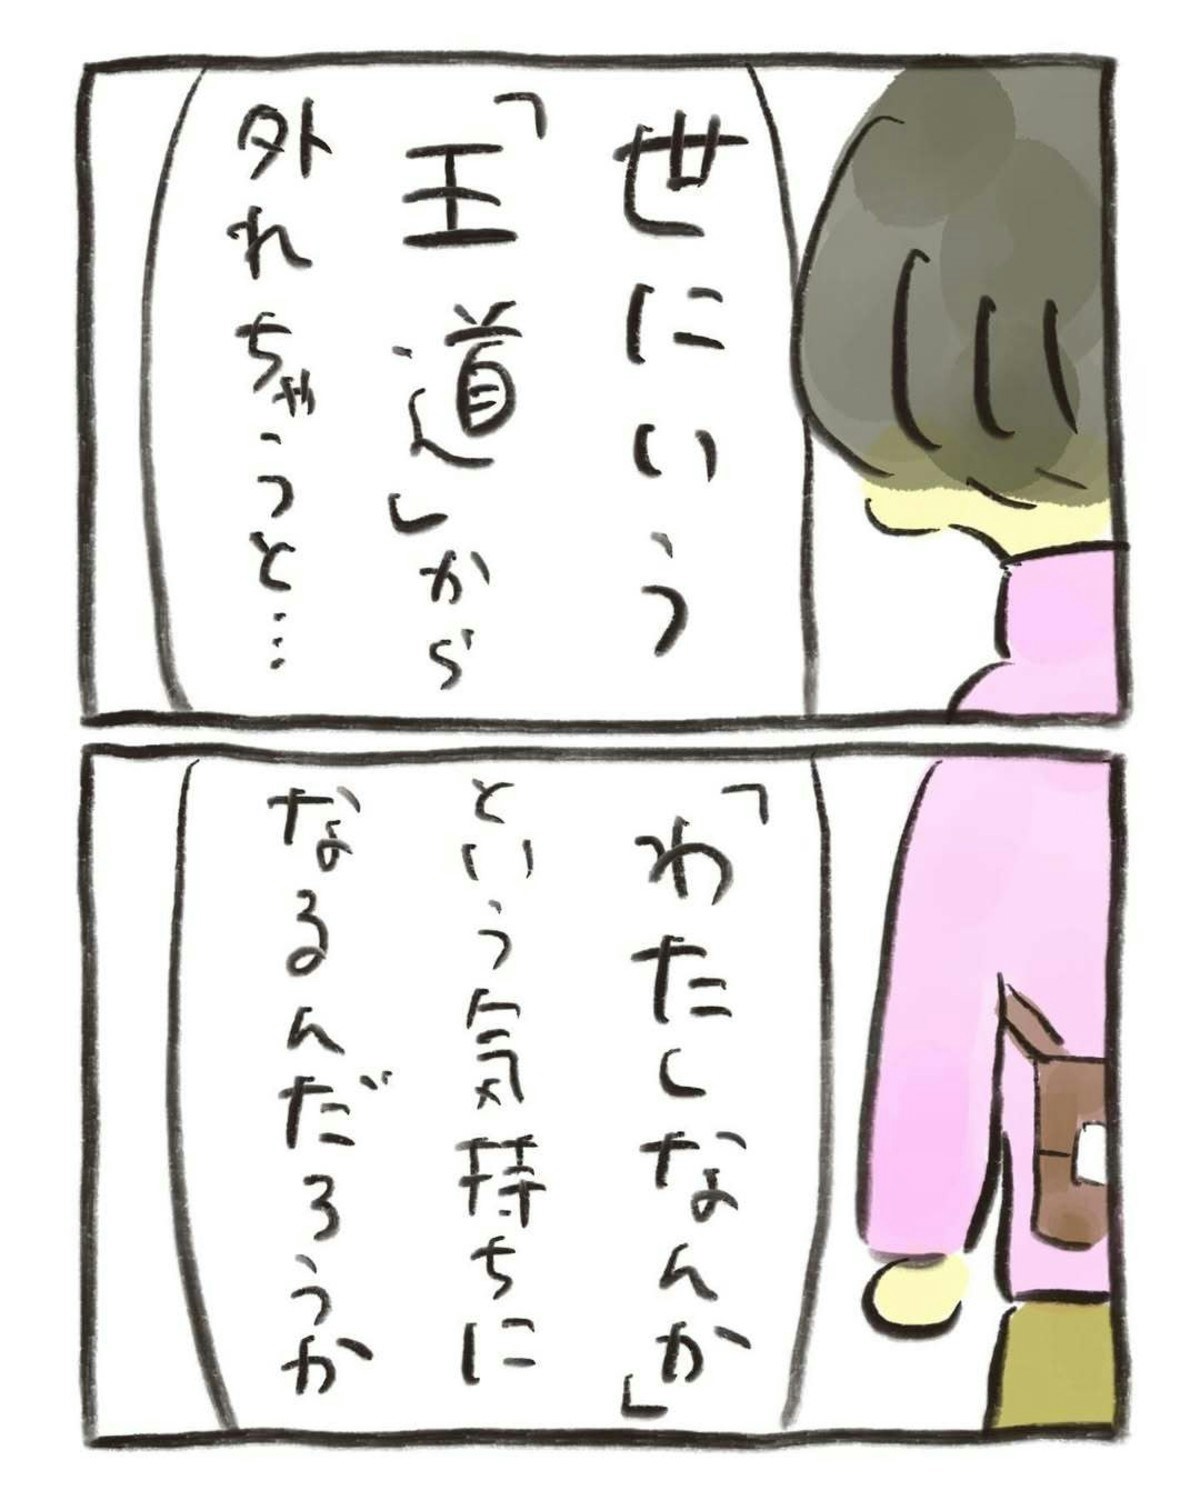 世にいう
「王道」から
外れちゃうと…
「わたしなんか」
という気持ちに
なるんだろうか